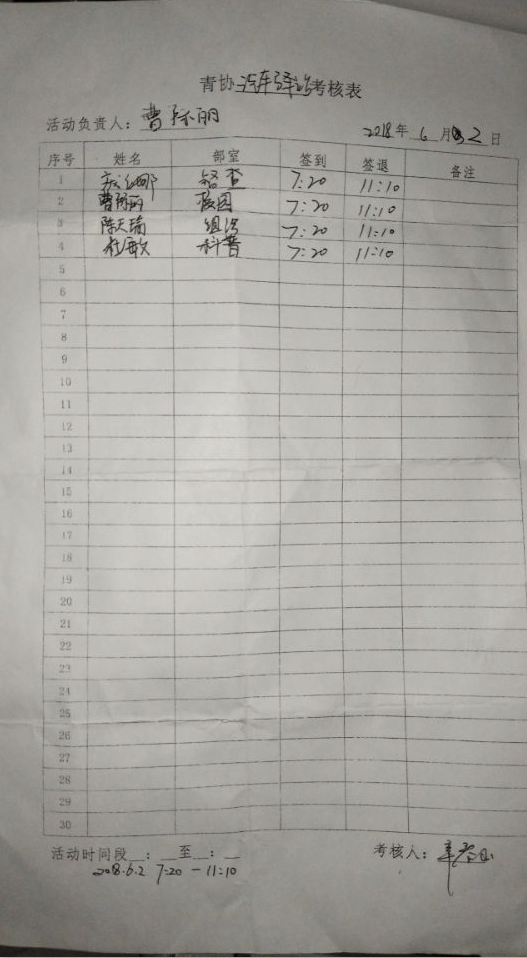 青协汽车驿站考核表
活动负责人：曹际丽
2018年 6 月 2 日
序号 姓名 部室 签到 签退 备注
1 7:20 11:10
2 曹际丽 校园 7:20 11:10
3 陈天瑞 组织 7:20 11:10
4 杜敏 科普 7:20 11:10
5
6
7
8
9
10
11
12
13
14
15
16
17
18
19
20
21
22
23
24
25
26
27
28
29
30
活动时间段__：__至__：__ 考核人：
2018.6.2 7:20 - 11:10